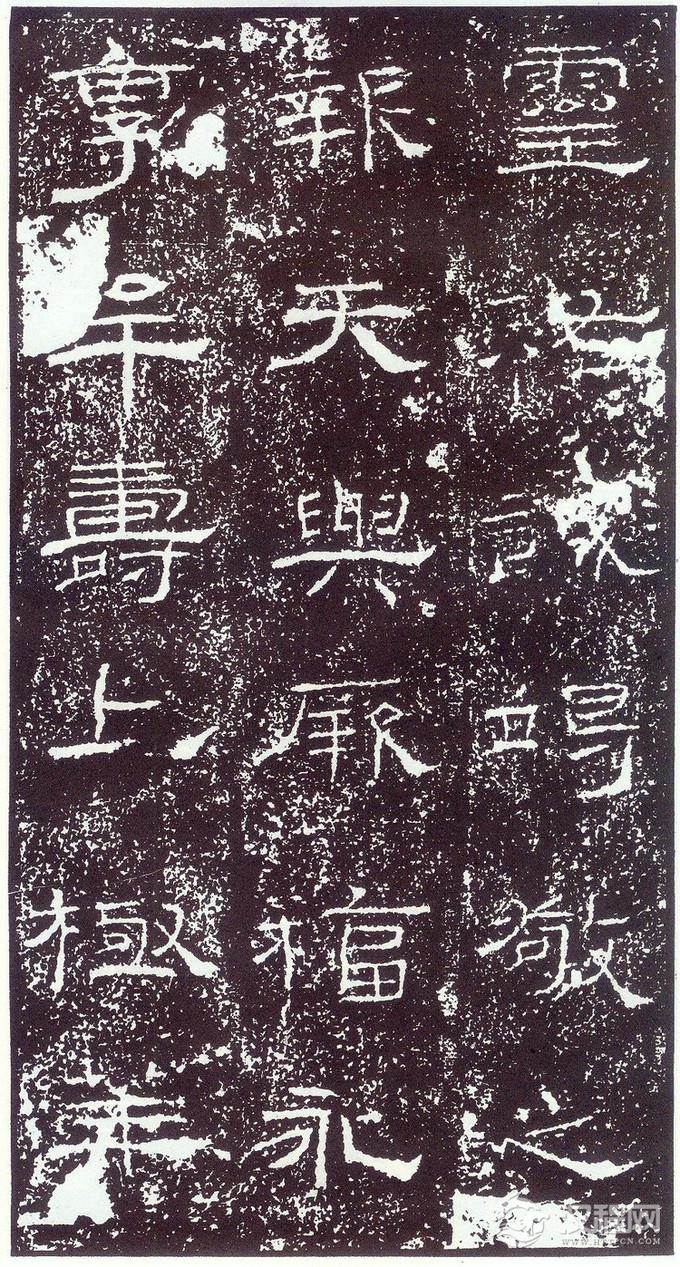 靈祐誠竭敬之
報天與厥福永
享牟壽上極華
汉程网
WWW.HTTPCN.COM